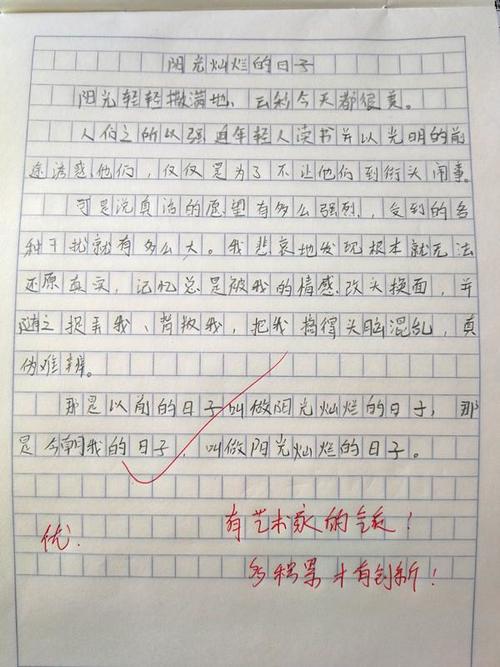 阳光灿烂的日子
阳光轻轻撒满地，云彩今天都很美。
人们之所以强迫年轻人读书并以光明的前
途诱惑他们，仅仅是为了不让他们到街头闹事。
可是说真话的愿望有多么强烈，受到的各
种干扰就有多么大。我悲哀地发现根本就无法
还原真实，记忆总是被我的情感改头换面，并
随之捉弄我、背叛我，把我搞得头脑混乱，真
伪难辨。
那是以前的日子叫做阳光灿烂的日子，那
是今朝我的日子，叫做阳光灿烂的日子。
有艺术家的气质！
优
多积累才有创新！